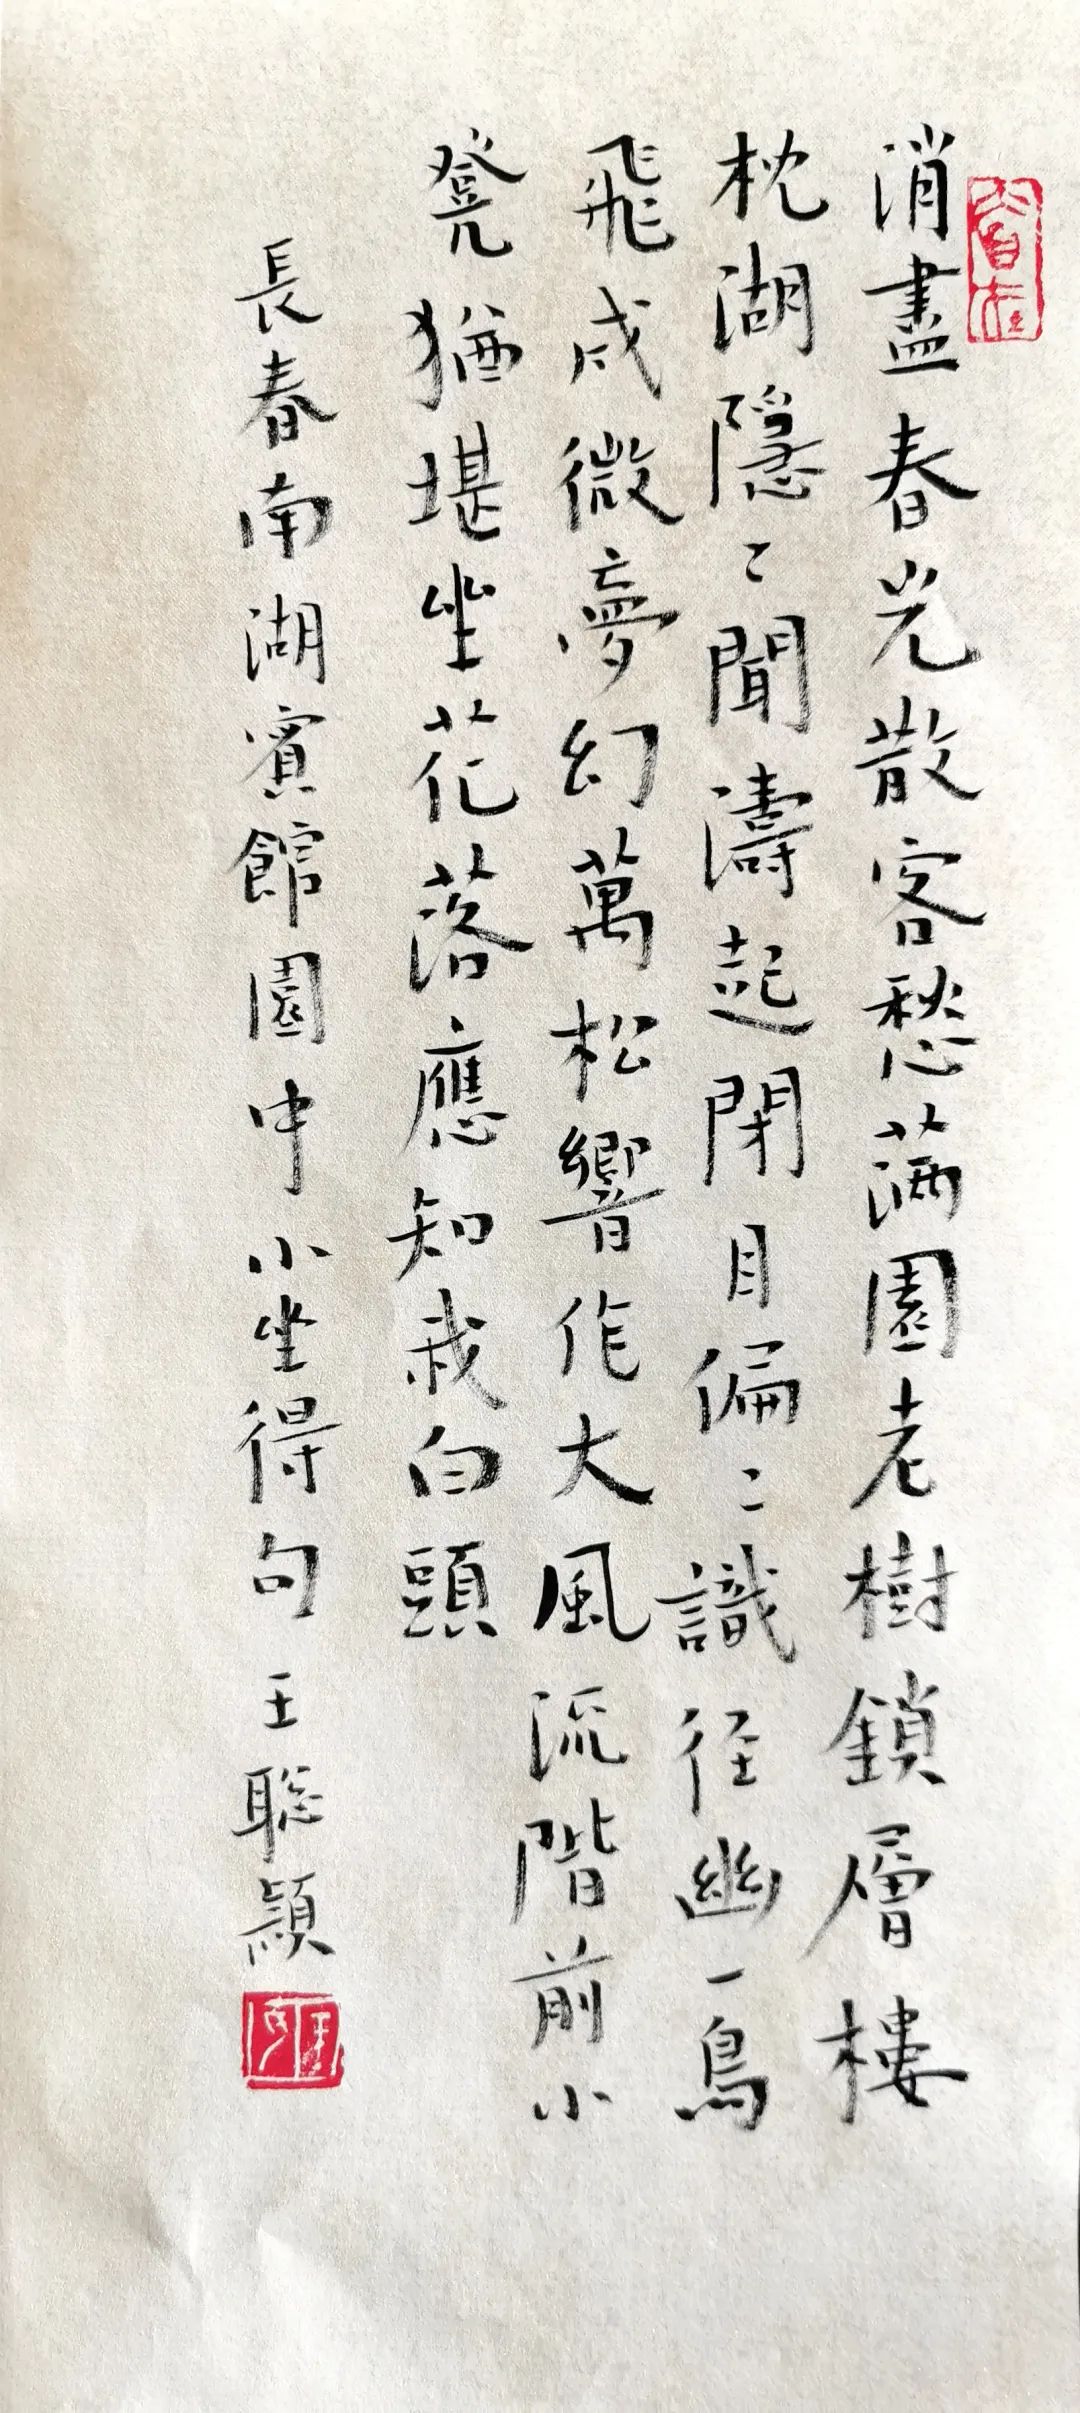 消盡春光散客愁滿園老樹鎖層樓
枕湖隱〻聞濤起閉目偏〻識徑幽一鳥
飛成微夢幻萬松響作大風流階前小
凳猶堪坐花落應知我白頭
長春南湖賓館園中小坐得句王聰穎